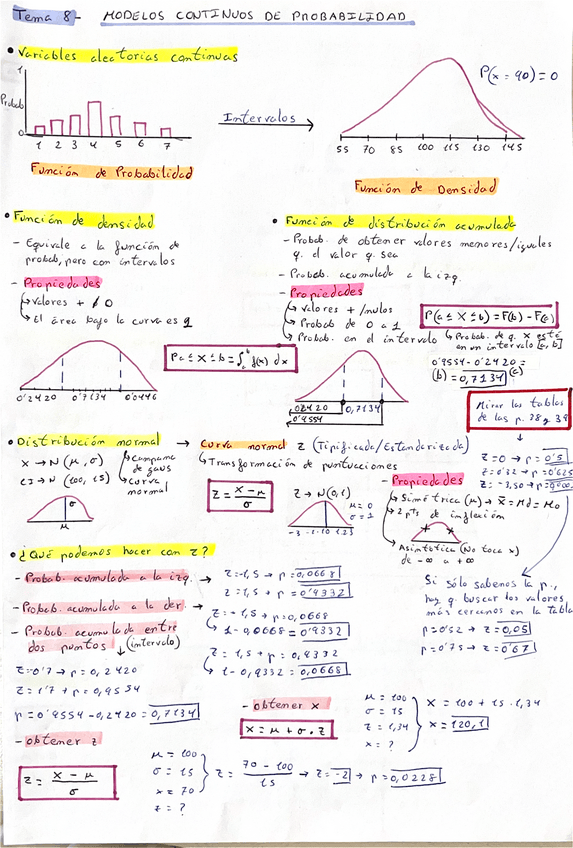 Tema 8- MODELOS CONTINUOS DE PROBABILIDAD
• Variables aleatorias continuas
1
Probab
0
1 2 3 4 5 6 7
Función de Probabilidad
Intervalos
P(x = 90) = 0
55 70 85 100 115 130 145
Función de Densidad
• Función de densidad
- Equivale a la función de
probab, pero con intervalos
- Propiedades
↳ valores + / 0
↳ El área bajo la curva es 1
0'2420 0'7134 0'0446
P a ≤ X ≤ b = ∫ f(x) dx
• Función de distribución acumulada
- Probab. de obtener valores menores/iguales
q. el valor q. sea
- Probab. acumulada a la izq.
- Propiedades
↳ valores + /nulos
↳ Probab de 0 a 1
↳ Probab. en el intervalo
P(a ≤ X ≤ b) = F(b) - F(a)
↳ Probab. de q. X esté
en un intervalo [a, b]
0'9554 - 0'2420 =
(b) = 0,7134 (a)
02420 0,7134
0'9554
Mirar las tablas
de las p. 38 y 39
• Distribución normal → Curva normal z (Tipificada/Estandarizada)
X → N (μ, σ)
CI → N (100, 15)
↳ Campana
de gaus
↳ curva
normal
σ
μ
↳ Transformación de puntuaciones
Z = x - μ / σ
Z → N(0,1)
μ = 0
σ = 1
z=0 → p = 0'5
- Propiedades
↳ Simétrica (μ) → X̄ = Md = Mo
↳ 2 pts de inflexión
↳ Asintótica (No toca x)
de -∞ a +∞
• ¿Qué podemos hacer con z?
- Probab. acumulada a la izq. → z=-1,5 → p = 0,0668
z = 1,5 → p = 0'9332
- Probab. acumulada a la der. → z = -1,5 → p = 0,0668
↳ 1 - 0,0668 = 0'9332
- Probab. acumulada entre
dos puntos ↓ (intervalo)
z = 1,5 → p = 0,9332
↳ 1 - 0,9332 = 0,0668
z = 0'7 → p = 0,2420
z = 1'7 → p = 0,9554
p = 0'9554 - 0,2420 = 0,7134
Si sólo sabemos la p.,
hay q. buscar los valores
más cercanos en la tabla
p = 0'52 → z = 0,05
p = 0'75 → z = 0'67
- obtener x
x = μ + σ · z
μ = 100
σ = 15
z = 1,34
x = ?
x = 100 + 15 · 1,34
x = 120,1
- obtener z
z = x - μ / σ
μ = 100
σ = 15
x = 70
z = ?
z = 70 - 100 / 15 → z = -2 → p = 0,0228